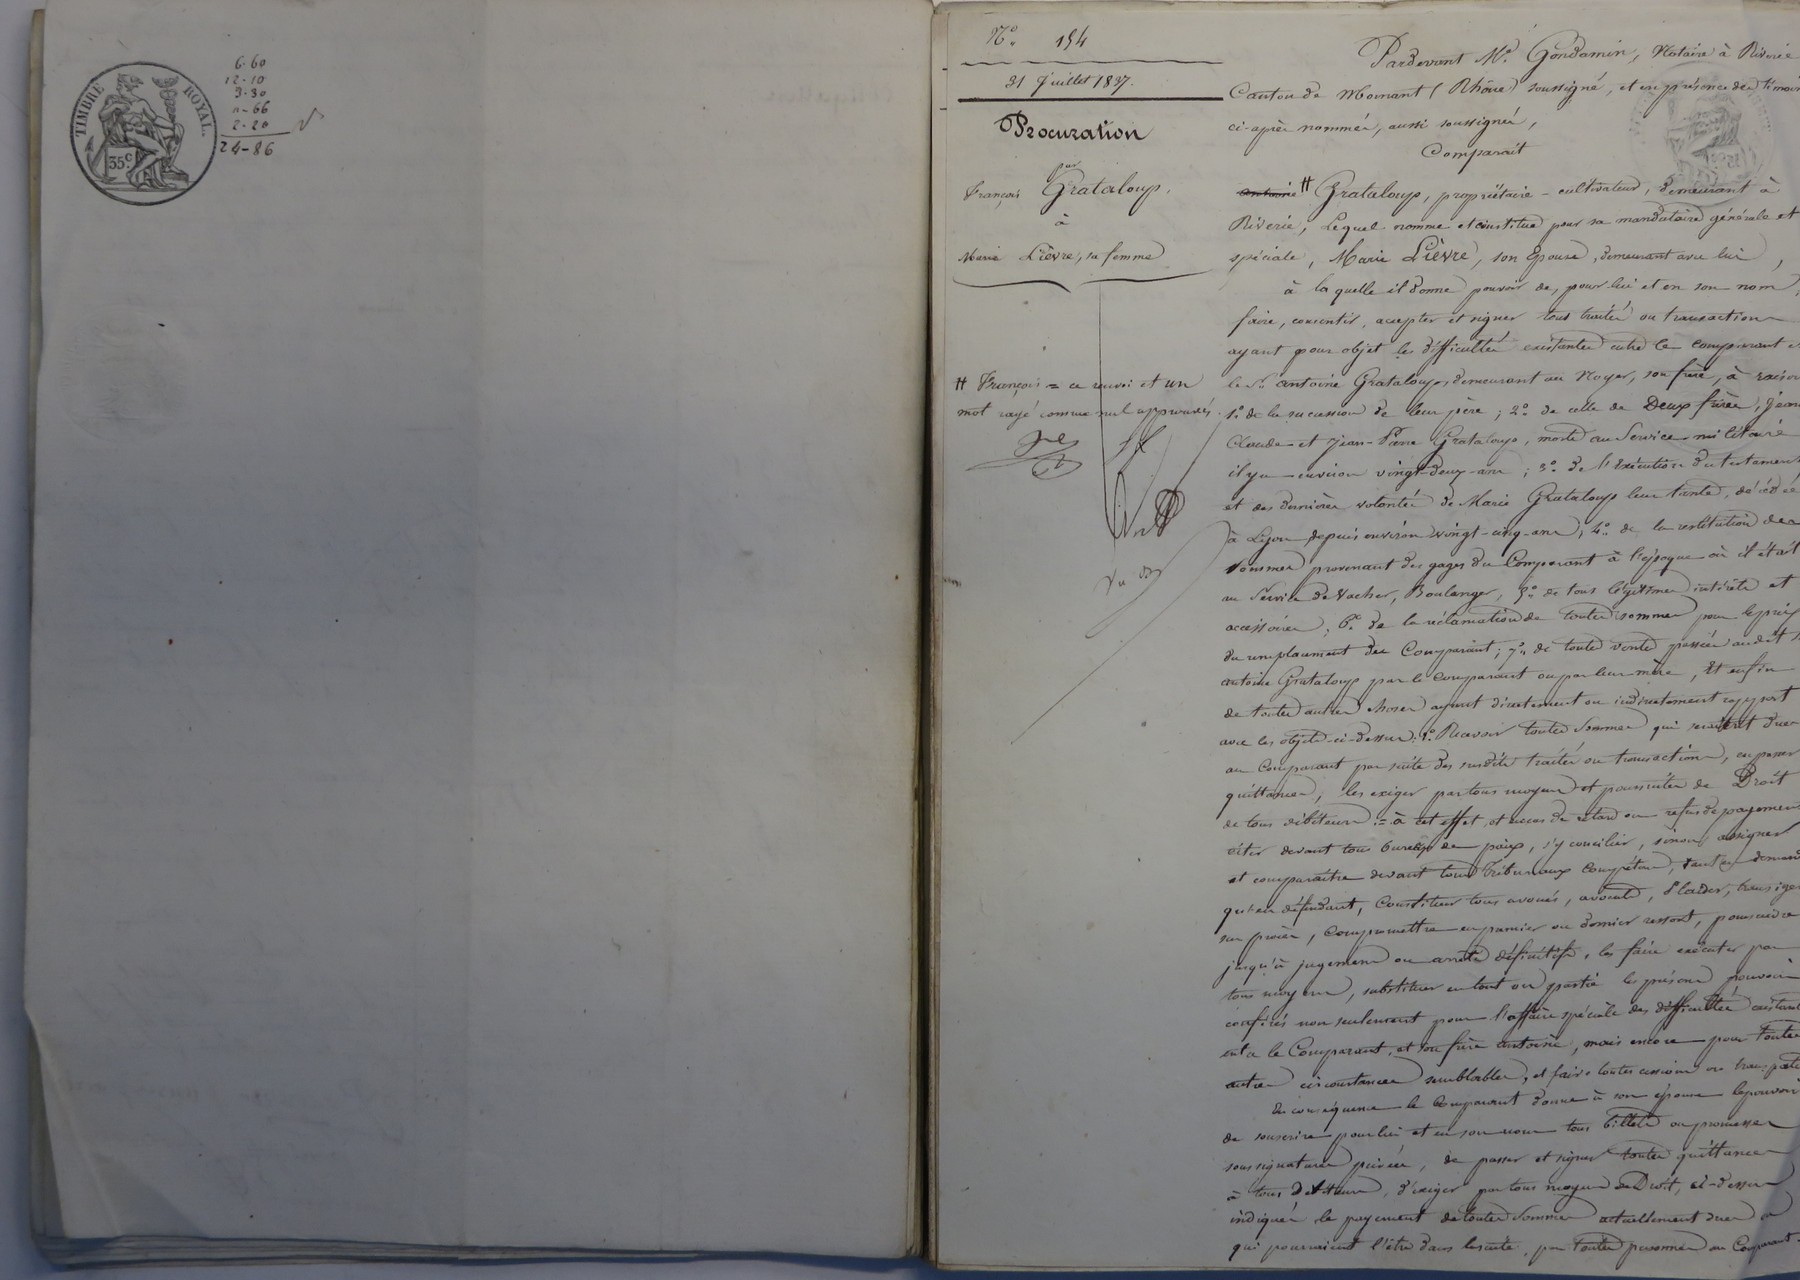 TIMBRE ROYAL.
35c.
6-60
12-10
3-30
0-66
2-20
24-86
N°. 154
31 Juillet 1837.
Procuration
par
François Grataloup,
à
Marie Lièvre, sa femme
# François = ce renvoi et un
mot rayé comme nul approuvés.
Vu
Pardevant Me. Gondamin, Notaire à Riverie
Canton de Mornant (Rhône) soussigné, et en présence des témoins
ci-après nommés, aussi soussignés,
Comparait
Antoine # Grataloup, propriétaire-cultivateur, demeurant à
Riverie, Lequel nomme et constitue pour sa mandataire générale et
spéciale, Marie Lièvre, son Epouse, demeurant avec lui,
à laquelle il donne pouvoir de, pour lui et en son nom,
faire, consentir, accepter et signer tous traités ou transactions
ayant pour objet les difficultés existantes entre le comparant et
le Sr. antoine Grataloup, demeurant au Noyer, son frère, à raison
1°. de la succession de leur père; 2°. de celle de Deux frères, Jean
Claude et Jean-Pierre Grataloup, morts au Service militaire
il y a environ vingt-deux-ans; 3°. de l'Exécution du testament
et des dernières volontés de Marie Grataloup leur tante, décédée
à Lyon depuis environ vingt-cinq-ans; 4°. de la restitution des
sommes provenant des gages du Comparant à l'époque où il était
au Service de Vacher, Boulanger, 5°. de tous légitimes intérêts et
accessoires; 6°. de la réclamation de toutes sommes pour le prix
du remplacement du Comparant; 7°. de toute vente passée audit S.
antoine Grataloup par le Comparant ou par leur mère, Et enfin
de toutes autres choses ayant directement ou indirectement rapport
avec les objets-ci-dessus: Recevoir toutes Sommes qui seraient dues
au Comparant par suite des susdits traités ou transactions, en passer
quittances; les exiger par tous moyens et poursuites de Droit
de tous débiteurs := à cet effet, et en cas de retard ou refus de payement
citer devant tous bureaux de paix, s'y concilier, sinon, assigner
et comparaître devant tous Tribunaux compétens, tant en demandant
qu'en défendant, Constituer tous avoués, avocats, Plaider, transiger
sur procès, Compromettre en premier ou dernier ressort, poursuivre
jusqu'à jugemens ou arrêts définitifs, les faire exécuter par
tous moyens, substituer en tout ou partie les présens pouvoirs
conférés non seulement pour l'affaire spéciale des difficultés existantes
entre le Comparant, et son frère antoine, mais encore pour toutes
autres circonstances semblables, et faire toutes cessions ou transports
En conséquence le Comparant donne à son épouse le pouvoir
de souscrire pour lui et en son nom tous billets ou promesses
sous signatures privées, de passer et signer toutes quittances
à tous Débiteurs, d'exiger par tous moyens de Droit, ci-dessus
indiqués le payement de toutes Sommes actuellement dues ou
qui pourraient l'être dans la suite, par toutes personnes au Comparant.